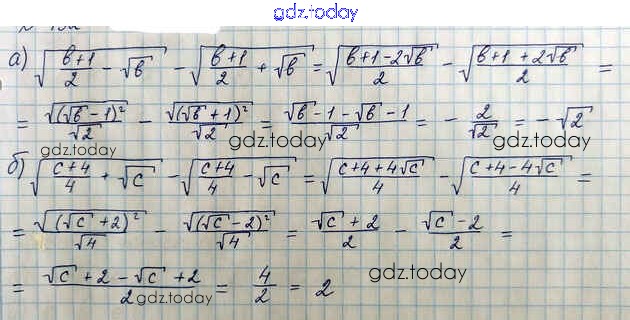 gdz.today
а) √((b+1)/2 − √b) − √((b+1)/2 + √b) = √((b+1−2√b)/2) − √((b+1+2√b)/2) =
= √((√b−1)²)/√2 − √((√b+1)²)/√2 = (√b−1−√b−1)/√2 = − 2/√2 = −√2
gdz.today
gdz.today
б) √((c+4)/4 + √c) − √((c+4)/4 − √c) = √((c+4+4√c)/4) − √((c+4−4√c)/4) =
= √((√c+2)²)/√4 − √((√c−2)²)/√4 = (√c+2)/2 − (√c−2)/2 =
= (√c+2−√c+2)/2 = 4/2 = 2
gdz.today
gdz.today